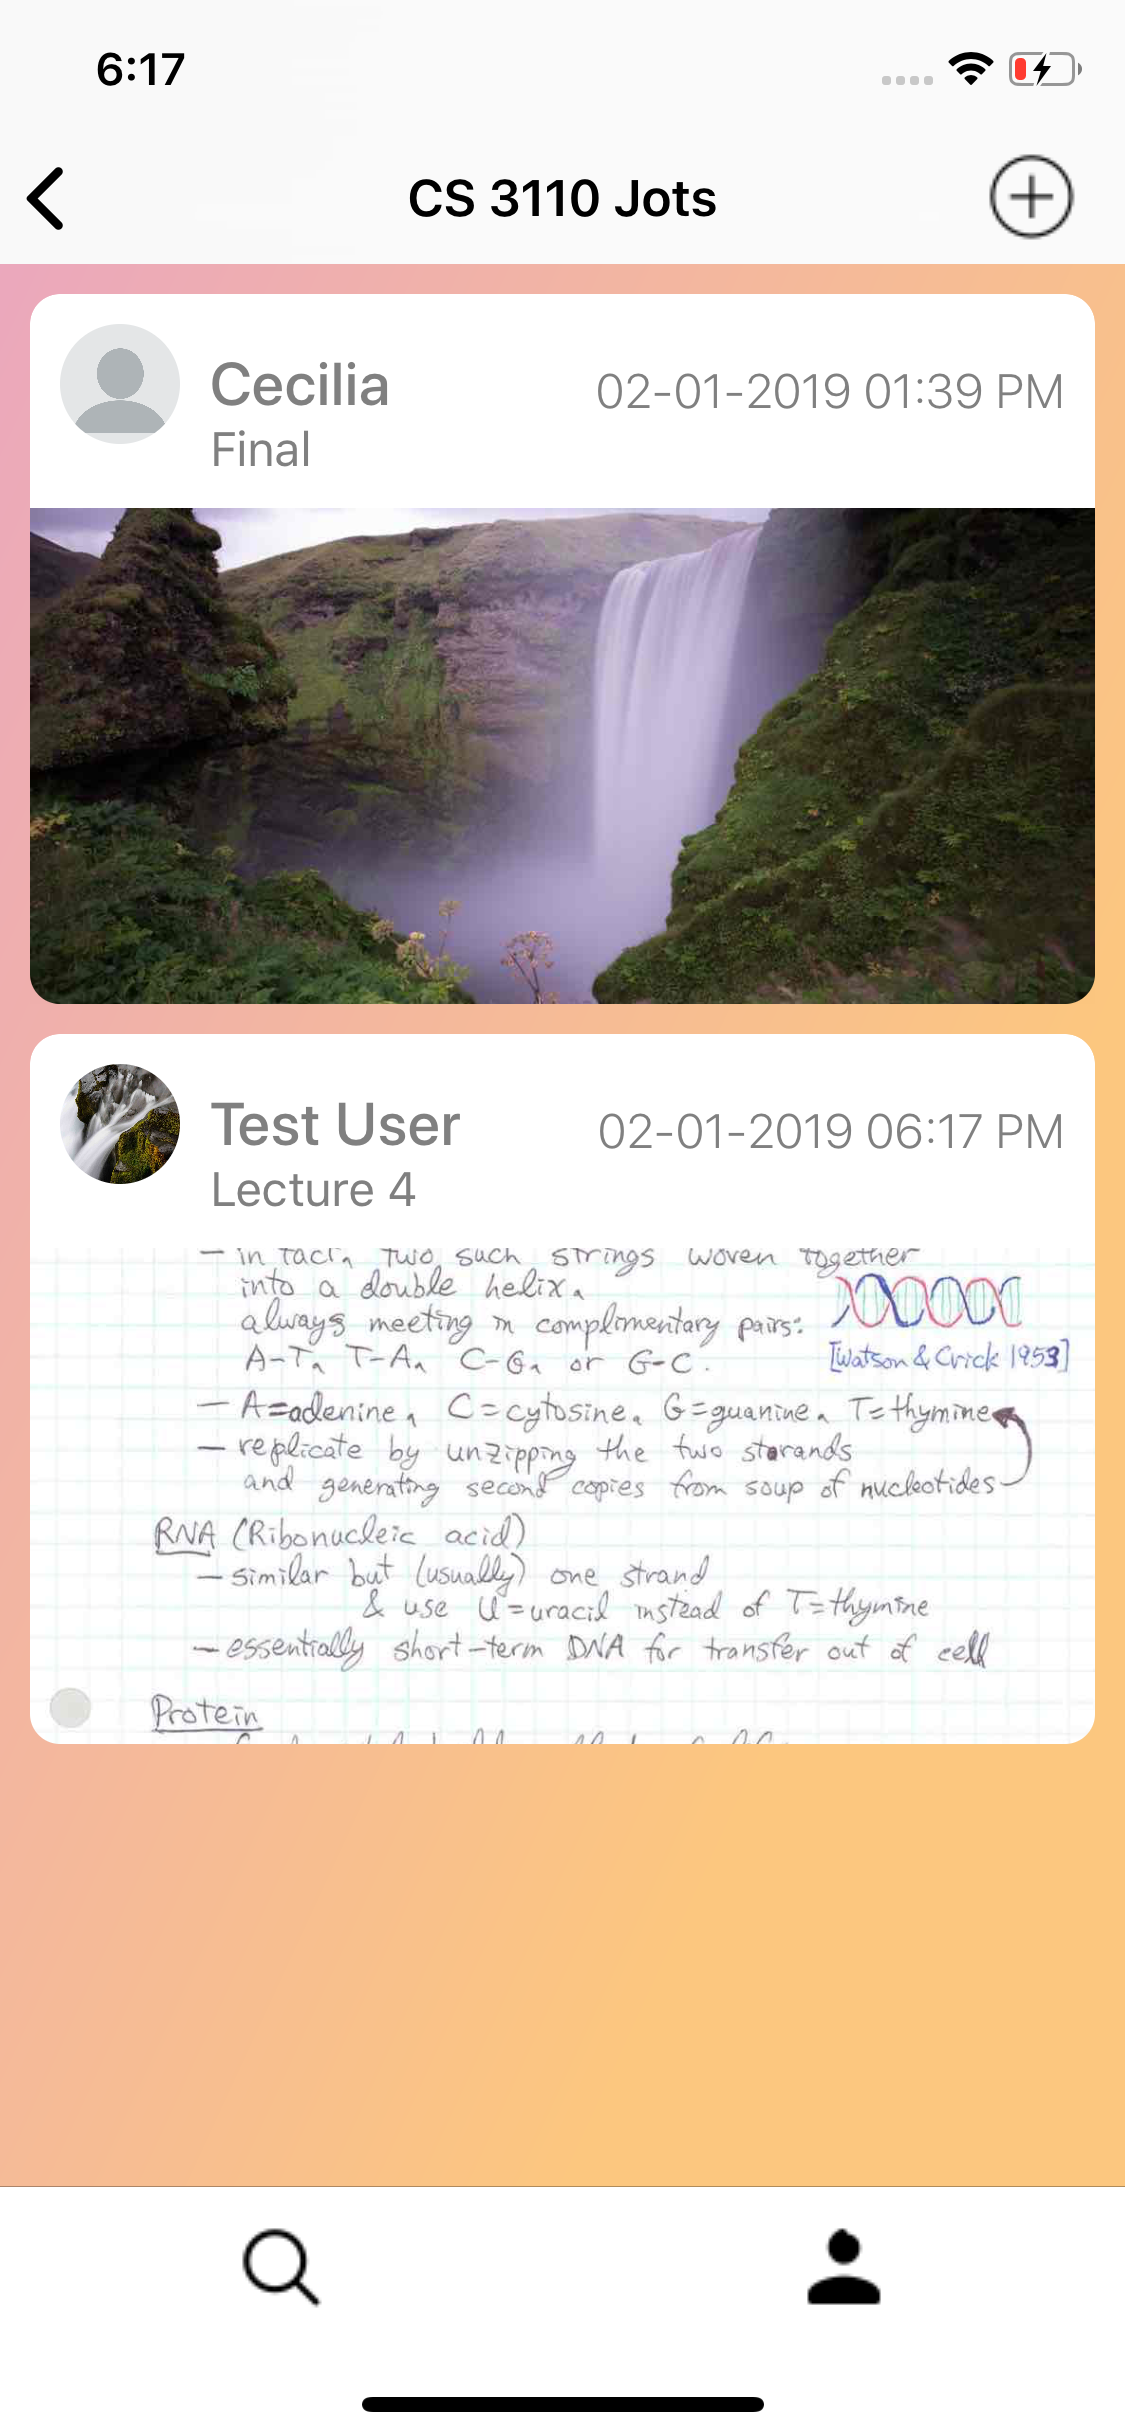 6:17
CS 3110 Jots
Cecilia
02-01-2019 01:39 PM
Final
Test User
02-01-2019 06:17 PM
Lecture 4
— in fact, two such strings woven together
into a double helix,
always meeting in complimentary pairs:
A-T, T-A, C-G, or G-C.
[Watson & Crick 1953]
— A=adenine, C=cytosine, G=guanine, T=thymine
— replicate by unzipping the two strands
and generating second copies from soup of nucleotides
RNA (Ribonucleic acid)
— similar but (usually) one strand
& use U=uracil instead of T=thymine
— essentially short-term DNA for transfer out of cell
Protein